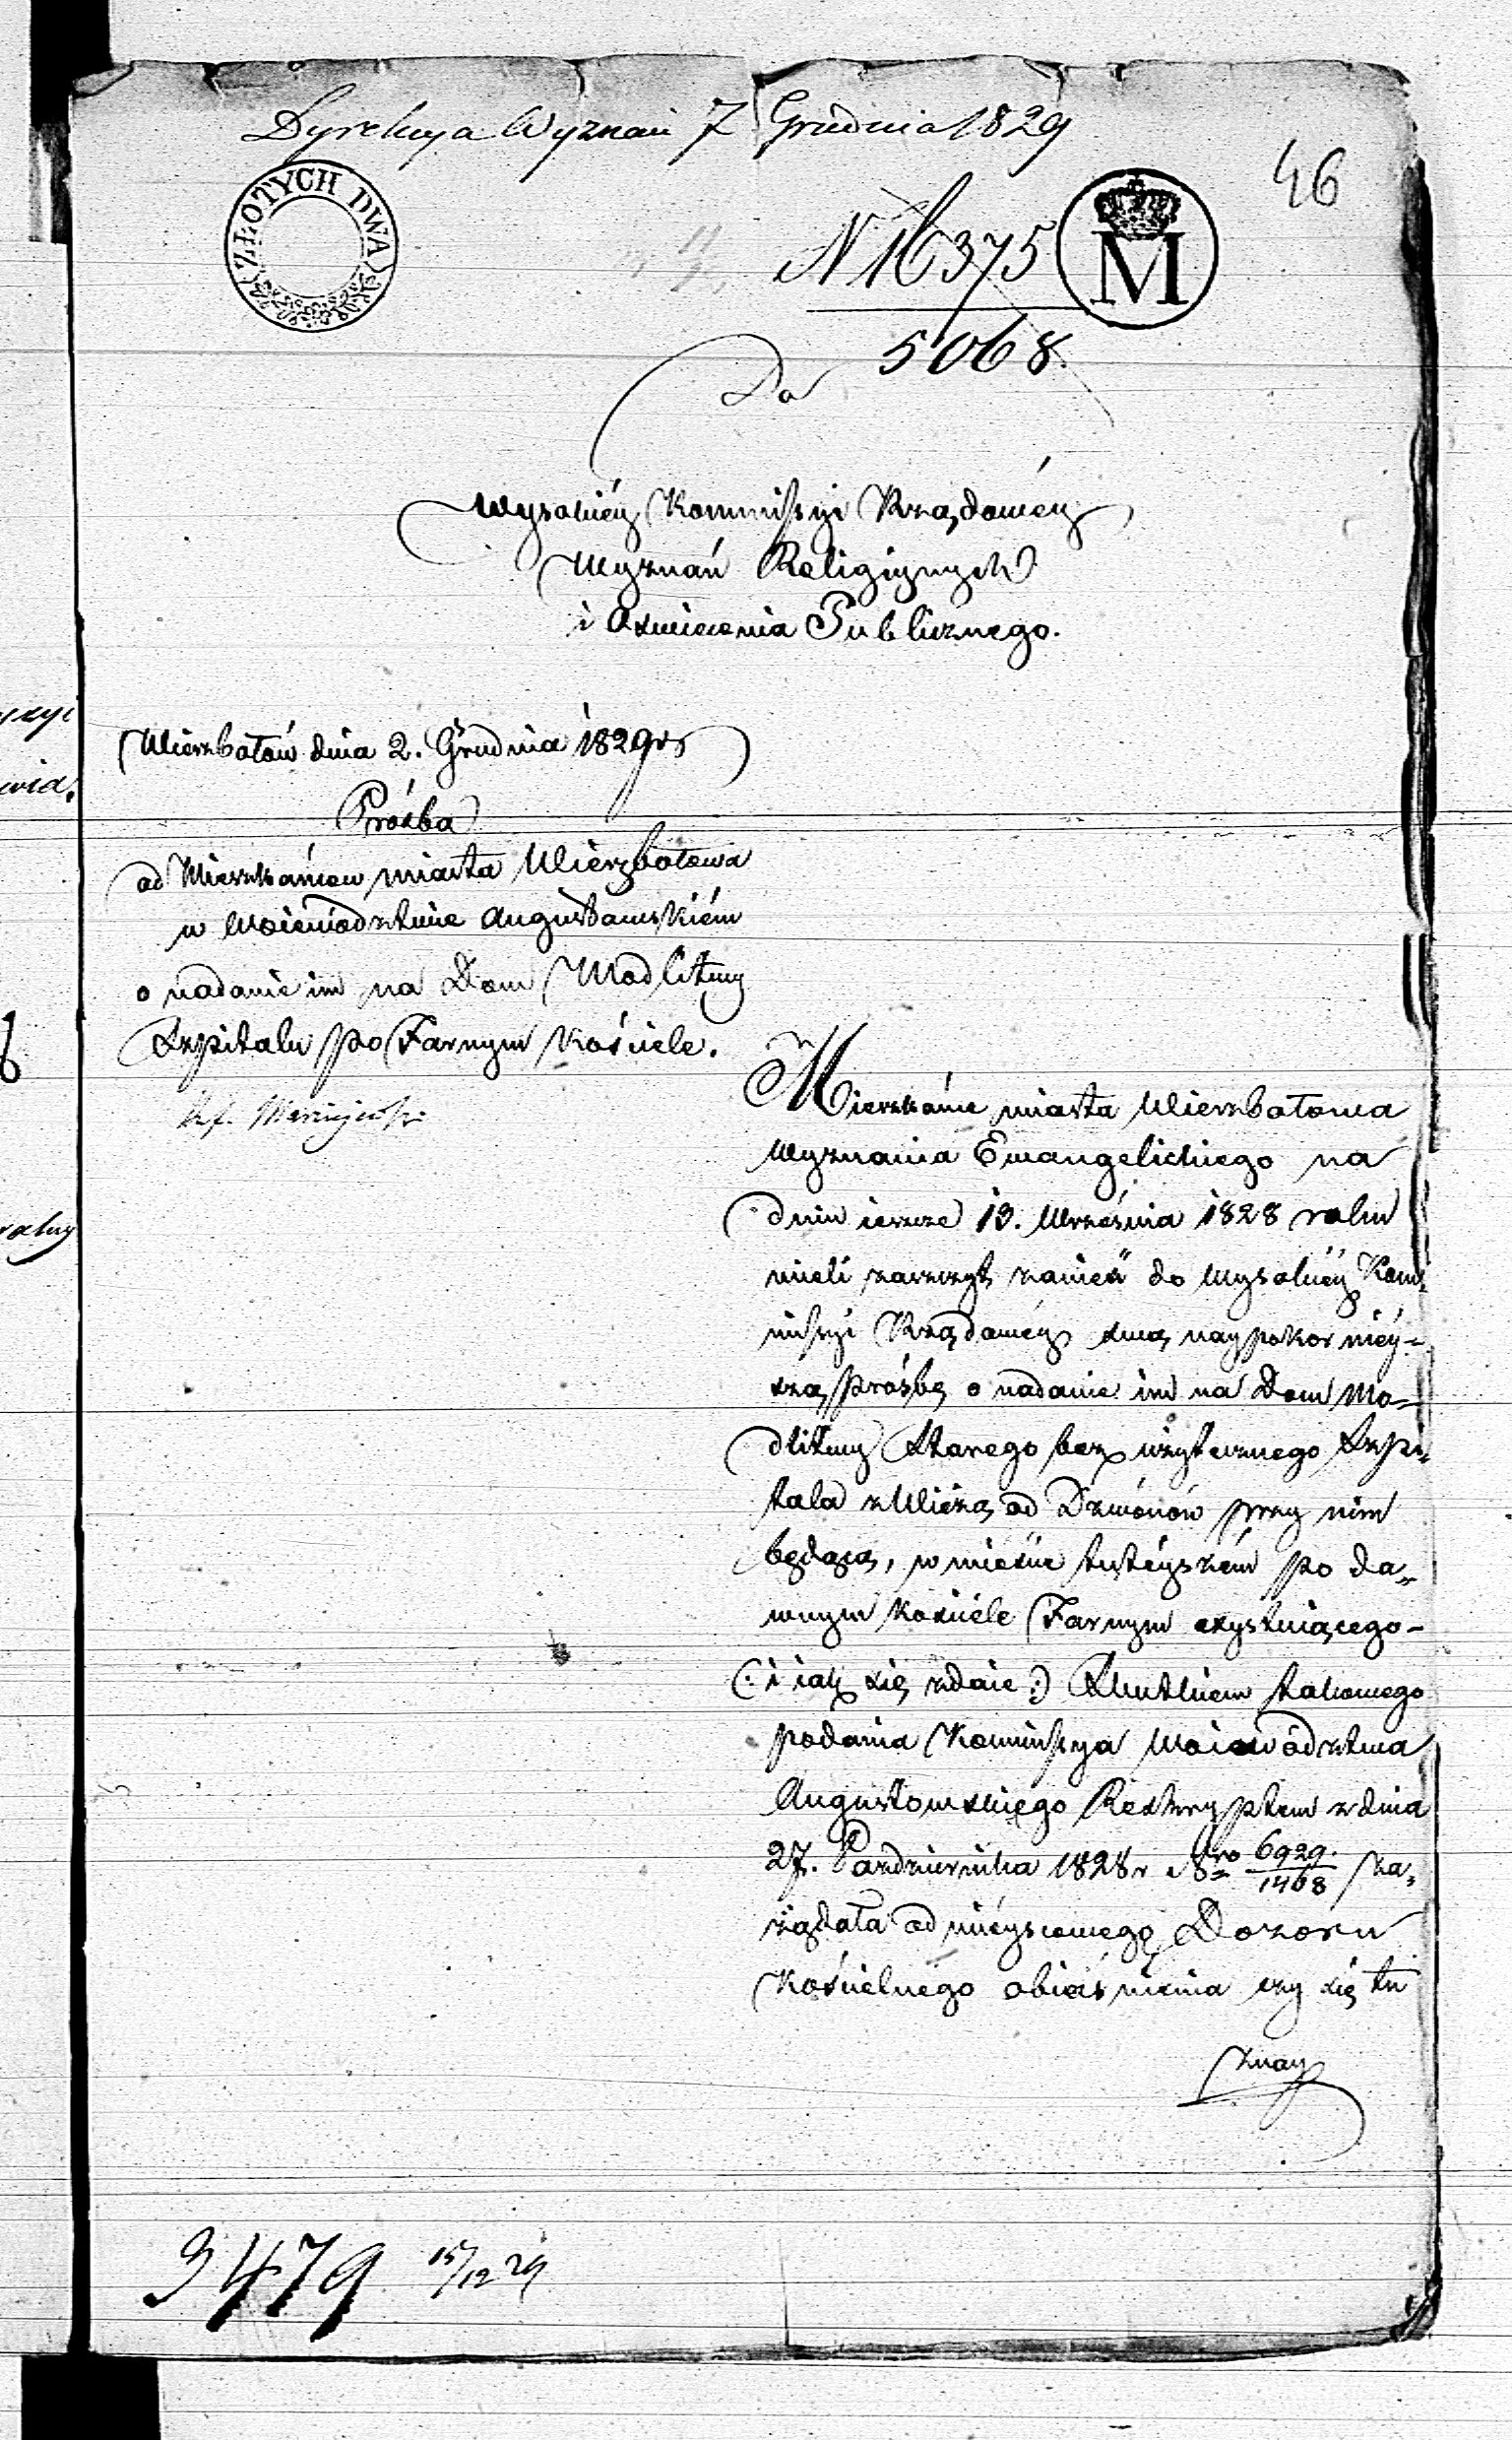 Dyrekcya Wyznań 7 Grudnia 1829
46
ZŁOTYCH DWA
M
N 16375
5068.
Do
Wysokiéy Kommissyi Rządowéy
Wyznań Religiynych
i Oświecenia Publicznego.
Wierzbołów dnia 2. Grudnia 1829 r
Prośba
od Mieszkańców miasta Wierzbołowa
w Woiewództwie Augustowskiém
o nadanie im na Dom Modlitwy
Szpitalu po Farnym Kościele.
yzyi
wia.
Mieszkańce miasta Wierzbołowa
Wyznania Ewangelickiego na
dniu ieszcze 13. Września 1828 roku
mieli zaszczyt zanieść do Wysokiéy Kom-
missyi Rządowéy swą naypokorniéy-
szą prośbę o nadanie im na Dom Mo-
dlitwy Starego bezużytecznego Szpi-
tala z Wieżą od Dzwonów przy nim
będącą, w mieście tutéyszém po da-
wnym Kościele Farnym exystuiącego-
(: i iak się zdaie :) Skutkiem takowego
podania Kommissya Woiewództwa
Augustowskiego Reskryptem z dnia
27. Pazdziernika 1828 r Nro 6929./1468 za-
żądała od mieyscowego Dozoru
Kościelnego obiaśnienia czy się tu
znay
3479 15/12 29